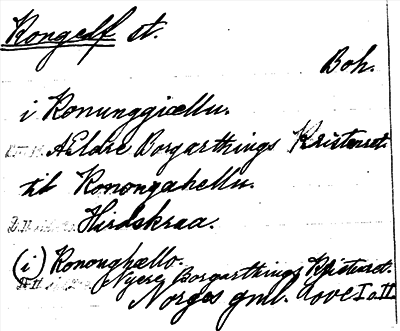 Kongelf st.
Boh.
i Konunggiællu.
AEldre Borgarthings Kristenret.
til Konongahellu.
Hirdskraa.
(i) Kononghællo.
Nyere Borgarthings Kristenret.
Norges gml. love I o II